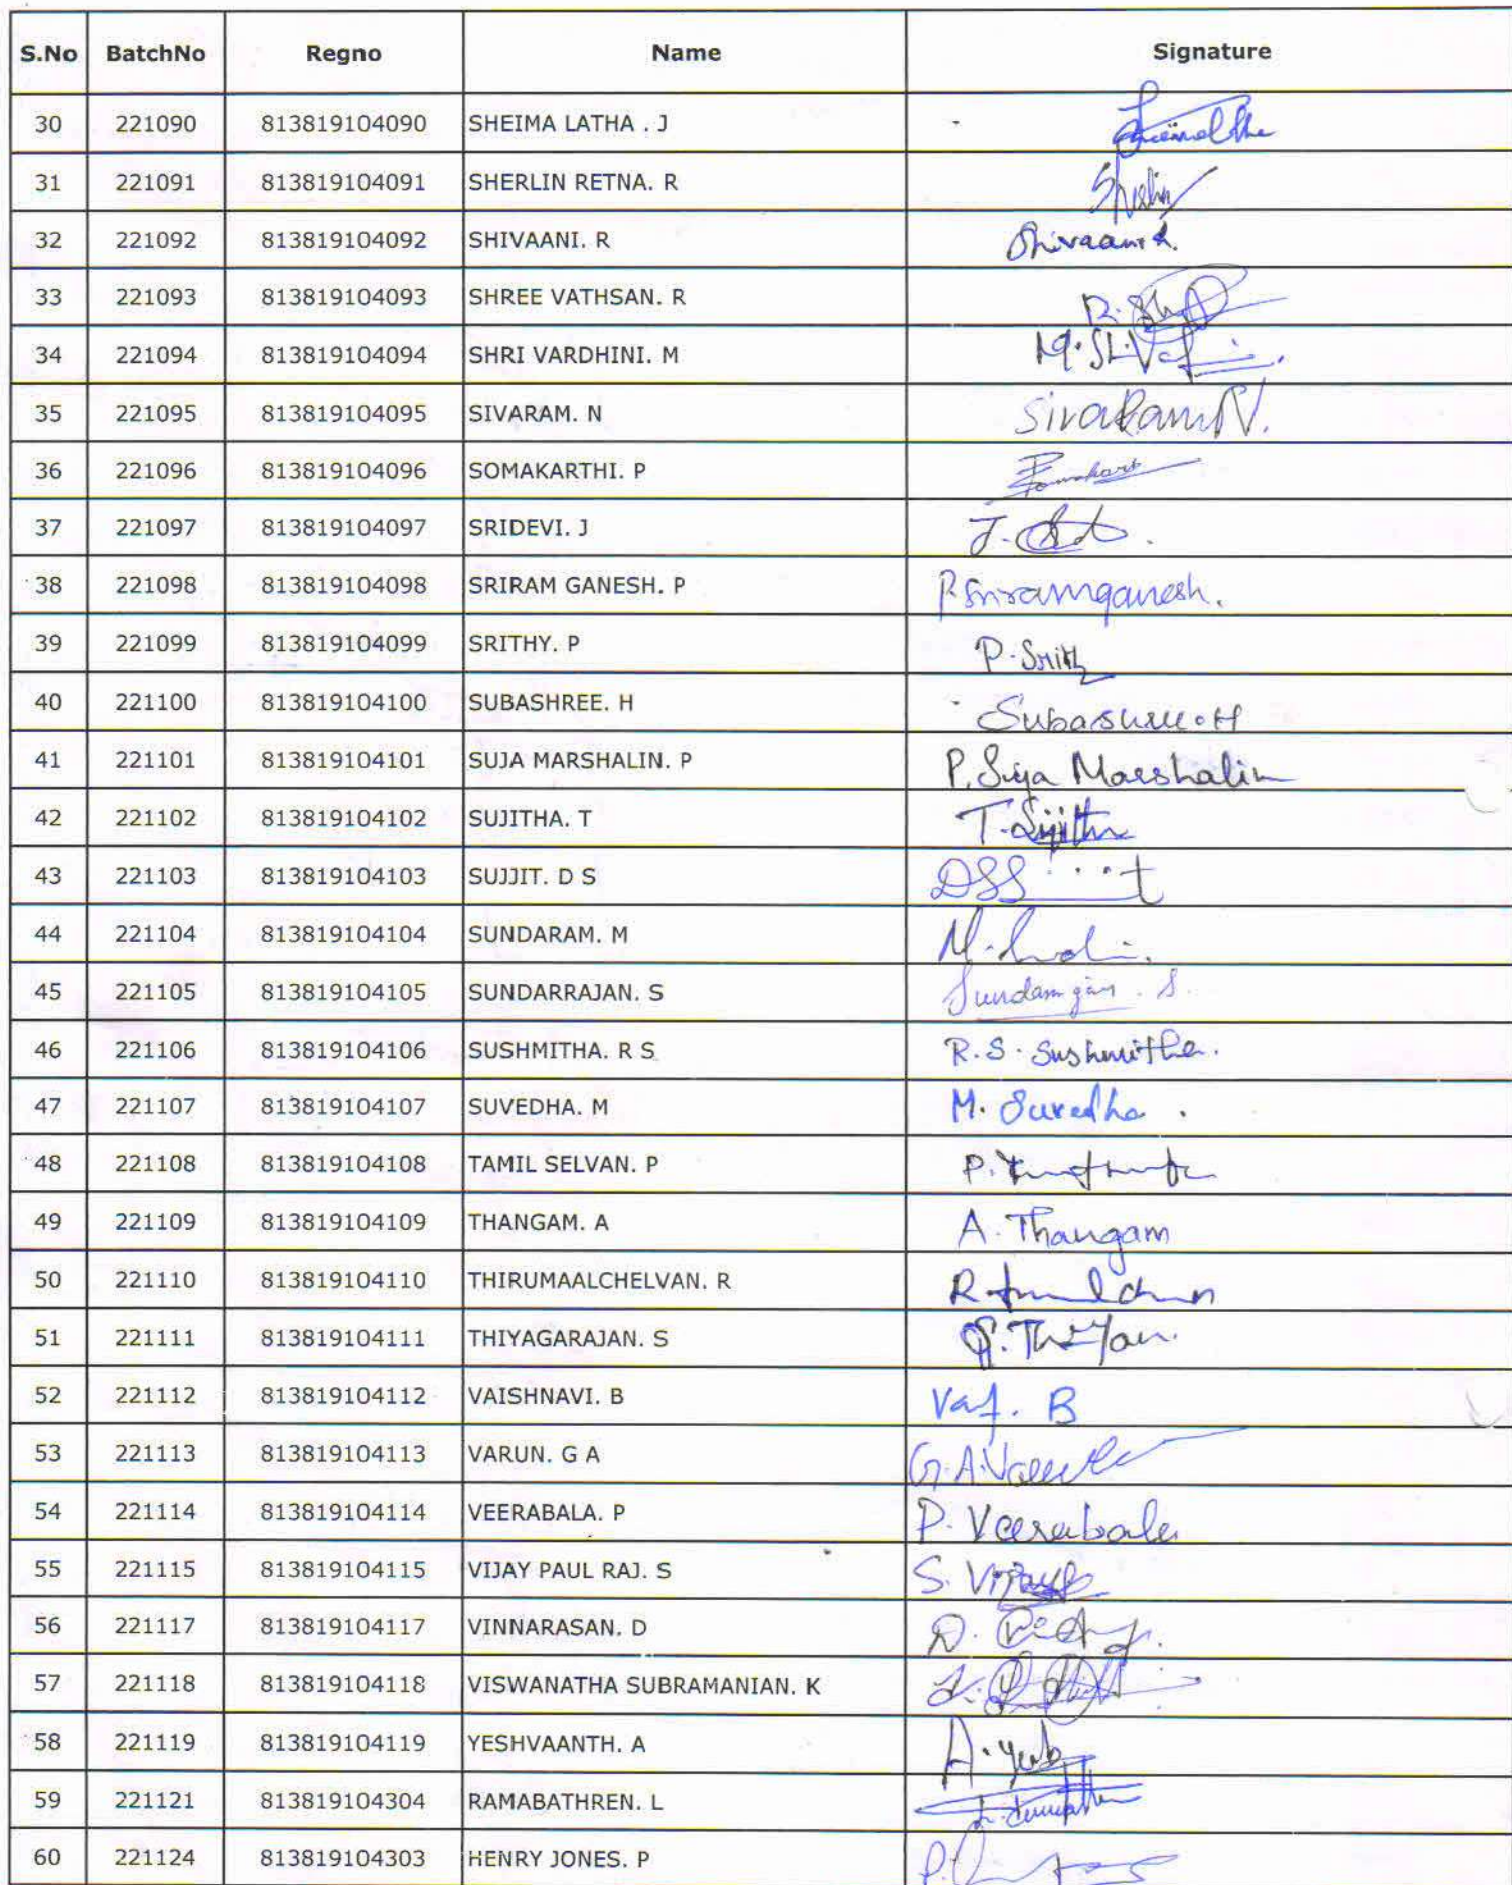 S.No BatchNo Regno Name Signature
30 221090 813819104090 SHEIMA LATHA . J
31 221091 813819104091 SHERLIN RETNA. R
32 221092 813819104092 SHIVAANI. R Shivaani R.
33 221093 813819104093 SHREE VATHSAN. R
34 221094 813819104094 SHRI VARDHINI. M
35 221095 813819104095 SIVARAM. N SivaRam N.
36 221096 813819104096 SOMAKARTHI. P
37 221097 813819104097 SRIDEVI. J
38 221098 813819104098 SRIRAM GANESH. P P Sriramganesh.
39 221099 813819104099 SRITHY. P
40 221100 813819104100 SUBASHREE. H Subashree. H
41 221101 813819104101 SUJA MARSHALIN. P P. Suja Marshalin
42 221102 813819104102 SUJITHA. T T. Sujitha
43 221103 813819104103 SUJJIT. D S
44 221104 813819104104 SUNDARAM. M
45 221105 813819104105 SUNDARRAJAN. S
46 221106 813819104106 SUSHMITHA. R S R. S. Sushmitha.
47 221107 813819104107 SUVEDHA. M M. Suvedha .
48 221108 813819104108 TAMIL SELVAN. P
49 221109 813819104109 THANGAM. A A. Thangam
50 221110 813819104110 THIRUMAALCHELVAN. R
51 221111 813819104111 THIYAGARAJAN. S
52 221112 813819104112 VAISHNAVI. B
53 221113 813819104113 VARUN. G A
54 221114 813819104114 VEERABALA. P P. Veerabala
55 221115 813819104115 VIJAY PAUL RAJ. S
56 221117 813819104117 VINNARASAN. D
57 221118 813819104118 VISWANATHA SUBRAMANIAN. K
58 221119 813819104119 YESHVAANTH. A
59 221121 813819104304 RAMABATHREN. L
60 221124 813819104303 HENRY JONES. P